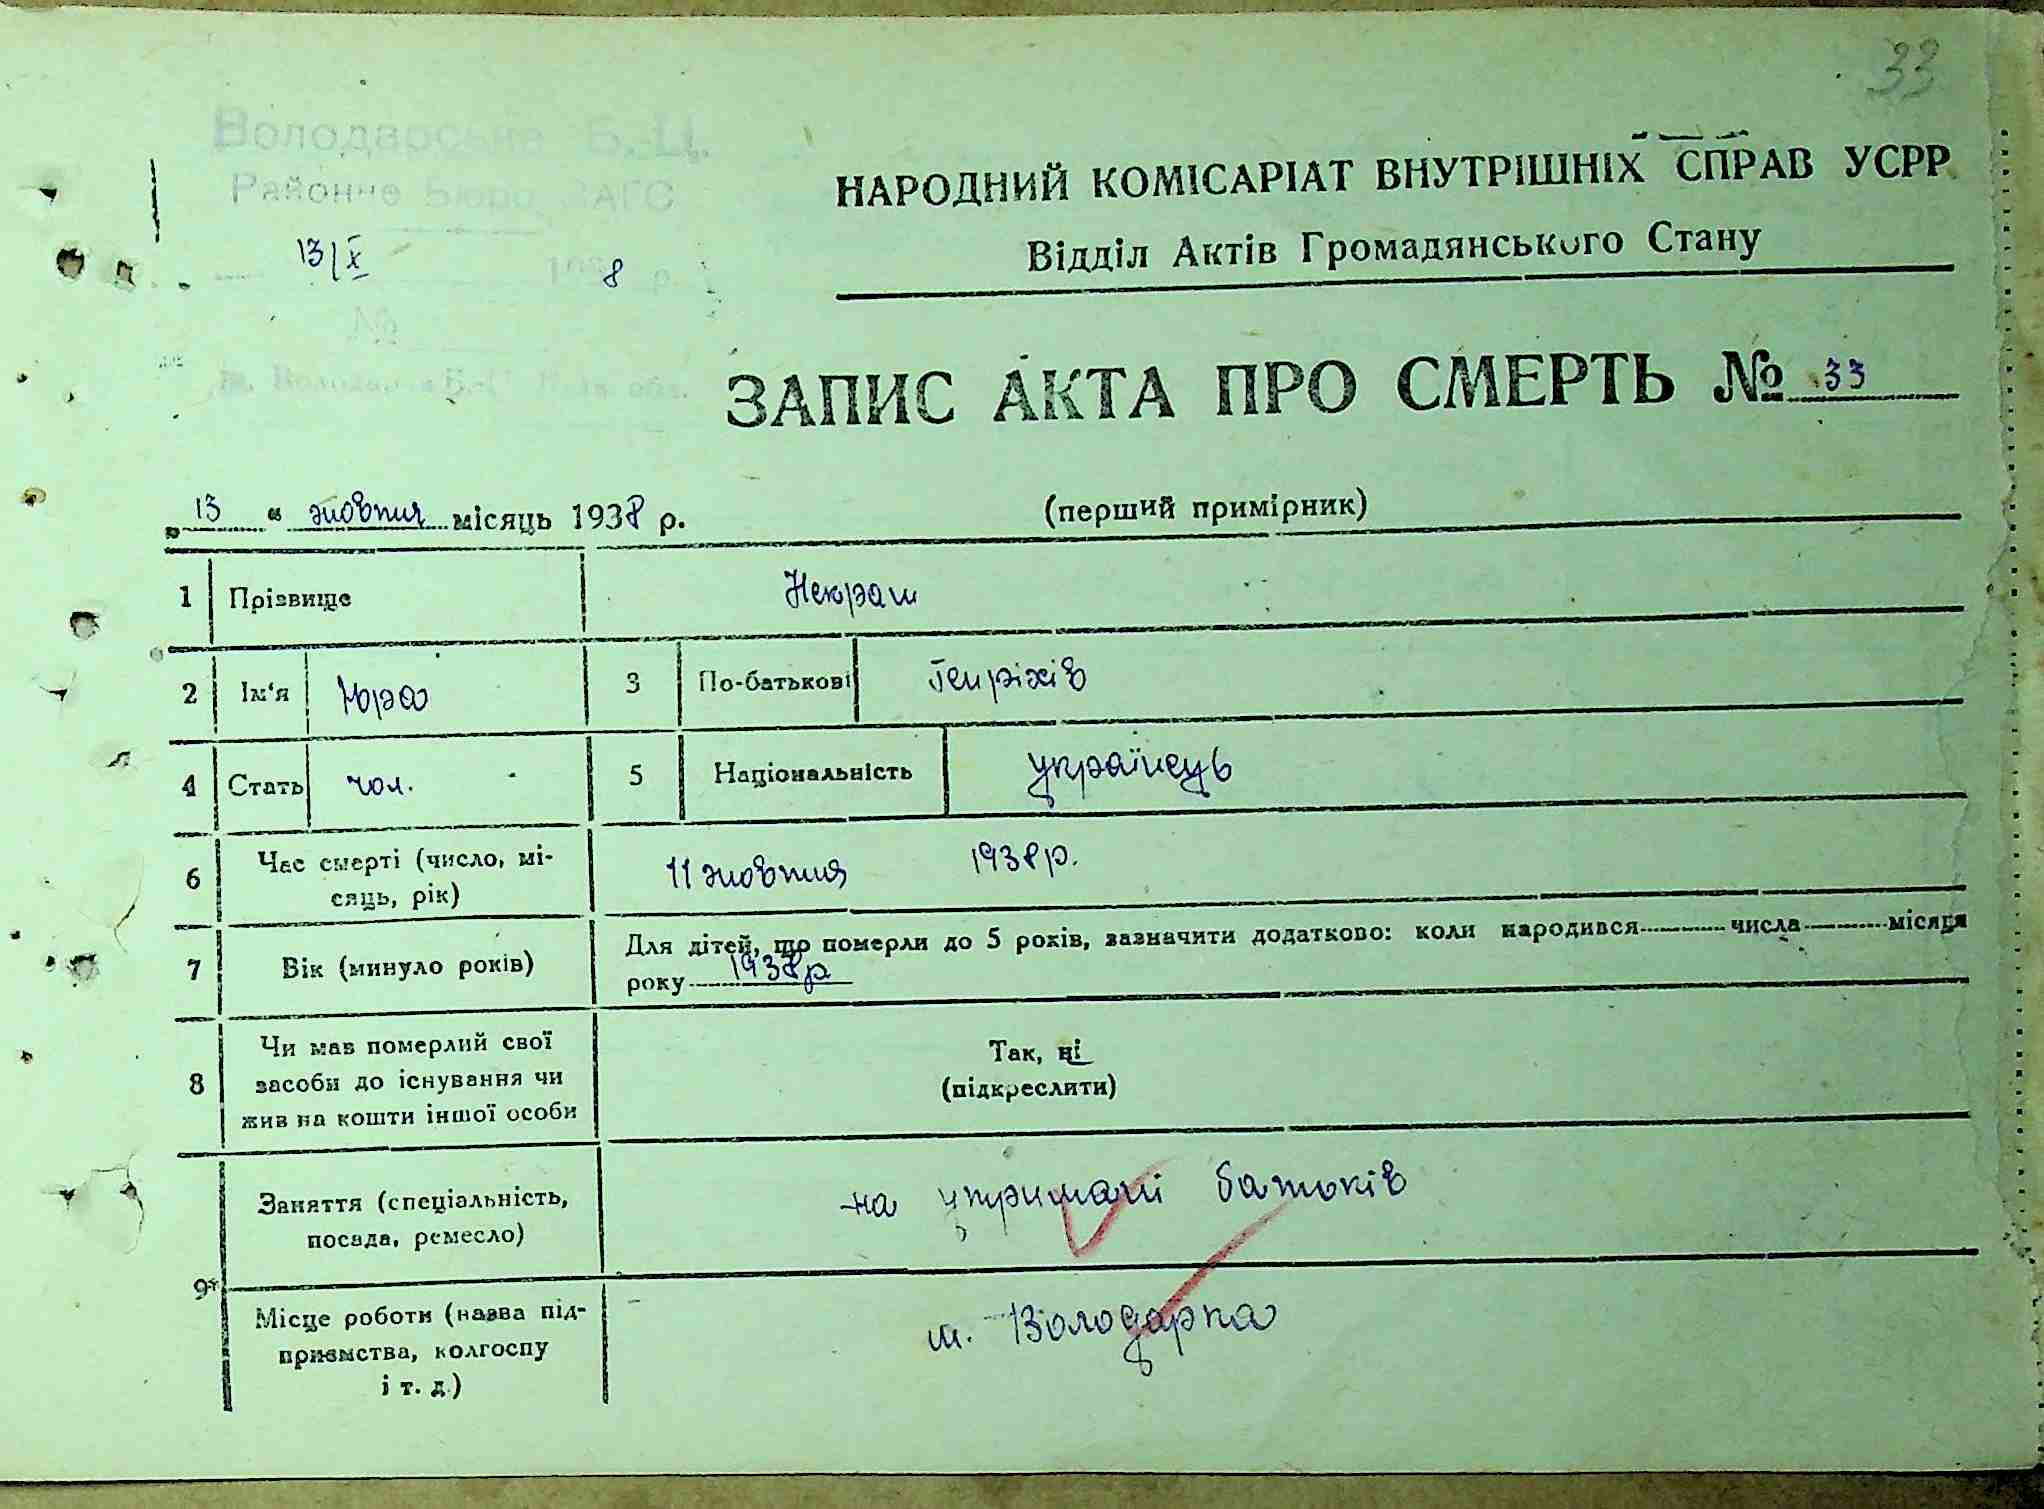 33
Володарське Б.-Ц.
Районне Бюро ЗАГС
13/X 1938 р.
№
НАРОДНИЙ КОМІСАРІАТ ВНУТРІШНІХ СПРАВ УСРР
Відділ Актів Громадянського Стану
ЗАПИС АКТА ПРО СМЕРТЬ № 33
„13" жовтня місяць 1938 р. (перший примірник)
1 Прізвище Некраш
2 Ім'я Юра 3 По-батькові Генріхів
4 Стать чол. 5 Національність українець
6 Час смерті (число, мі-
сяць, рік) 11 жовтня 1938р.
7 Вік (минуло років) Для дітей, що померли до 5 років, зазначити додатково: коли народився числа місяця
року 1938р
8 Чи мав померлий свої
засоби до існування чи
жив на кошти іншої особи
Так, ні
(підкреслити)
9 Заняття (спеціальність,
посада, ремесло) на утримані батьків
Місце роботи (назва під-
приємства, колгоспу
і т. д.) м. Володарка